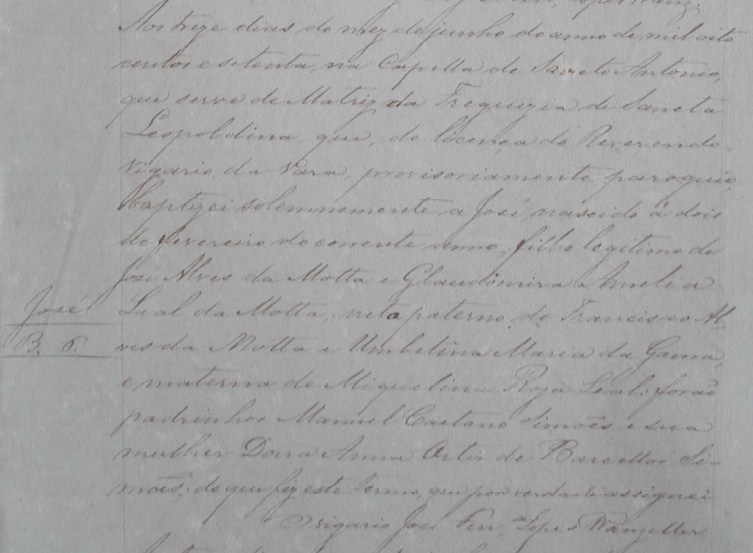 Aos treze dias do mez de junho do anno de mil oito
centos e setenta, na Capella de Sancto Antonio,
que serve de Matriz da Freguezia de Sancta
Leopoldina, que, de licença do Reverendo
Vigario da Vara, provisoriamente parochio,
baptizei solemnemente a José, nascido á dois
de fevereiro do corrente anno, filho legitimo de
José Alves da Motta e Glaudimira Amelia
José
Leal da Motta; neto paterno de Francisco Al-
B. 6.
ves da Motta e Umbelina Maria da Gama,
e materna de Miguelina Roza Leal: forão
padrinhos Manuel Caetano Simões e sua
mulher Dona Anna de Barcellos Si-
mões; de que fiz este termo, que por verdade assignei
O Vigario José Lopes Wanzeller